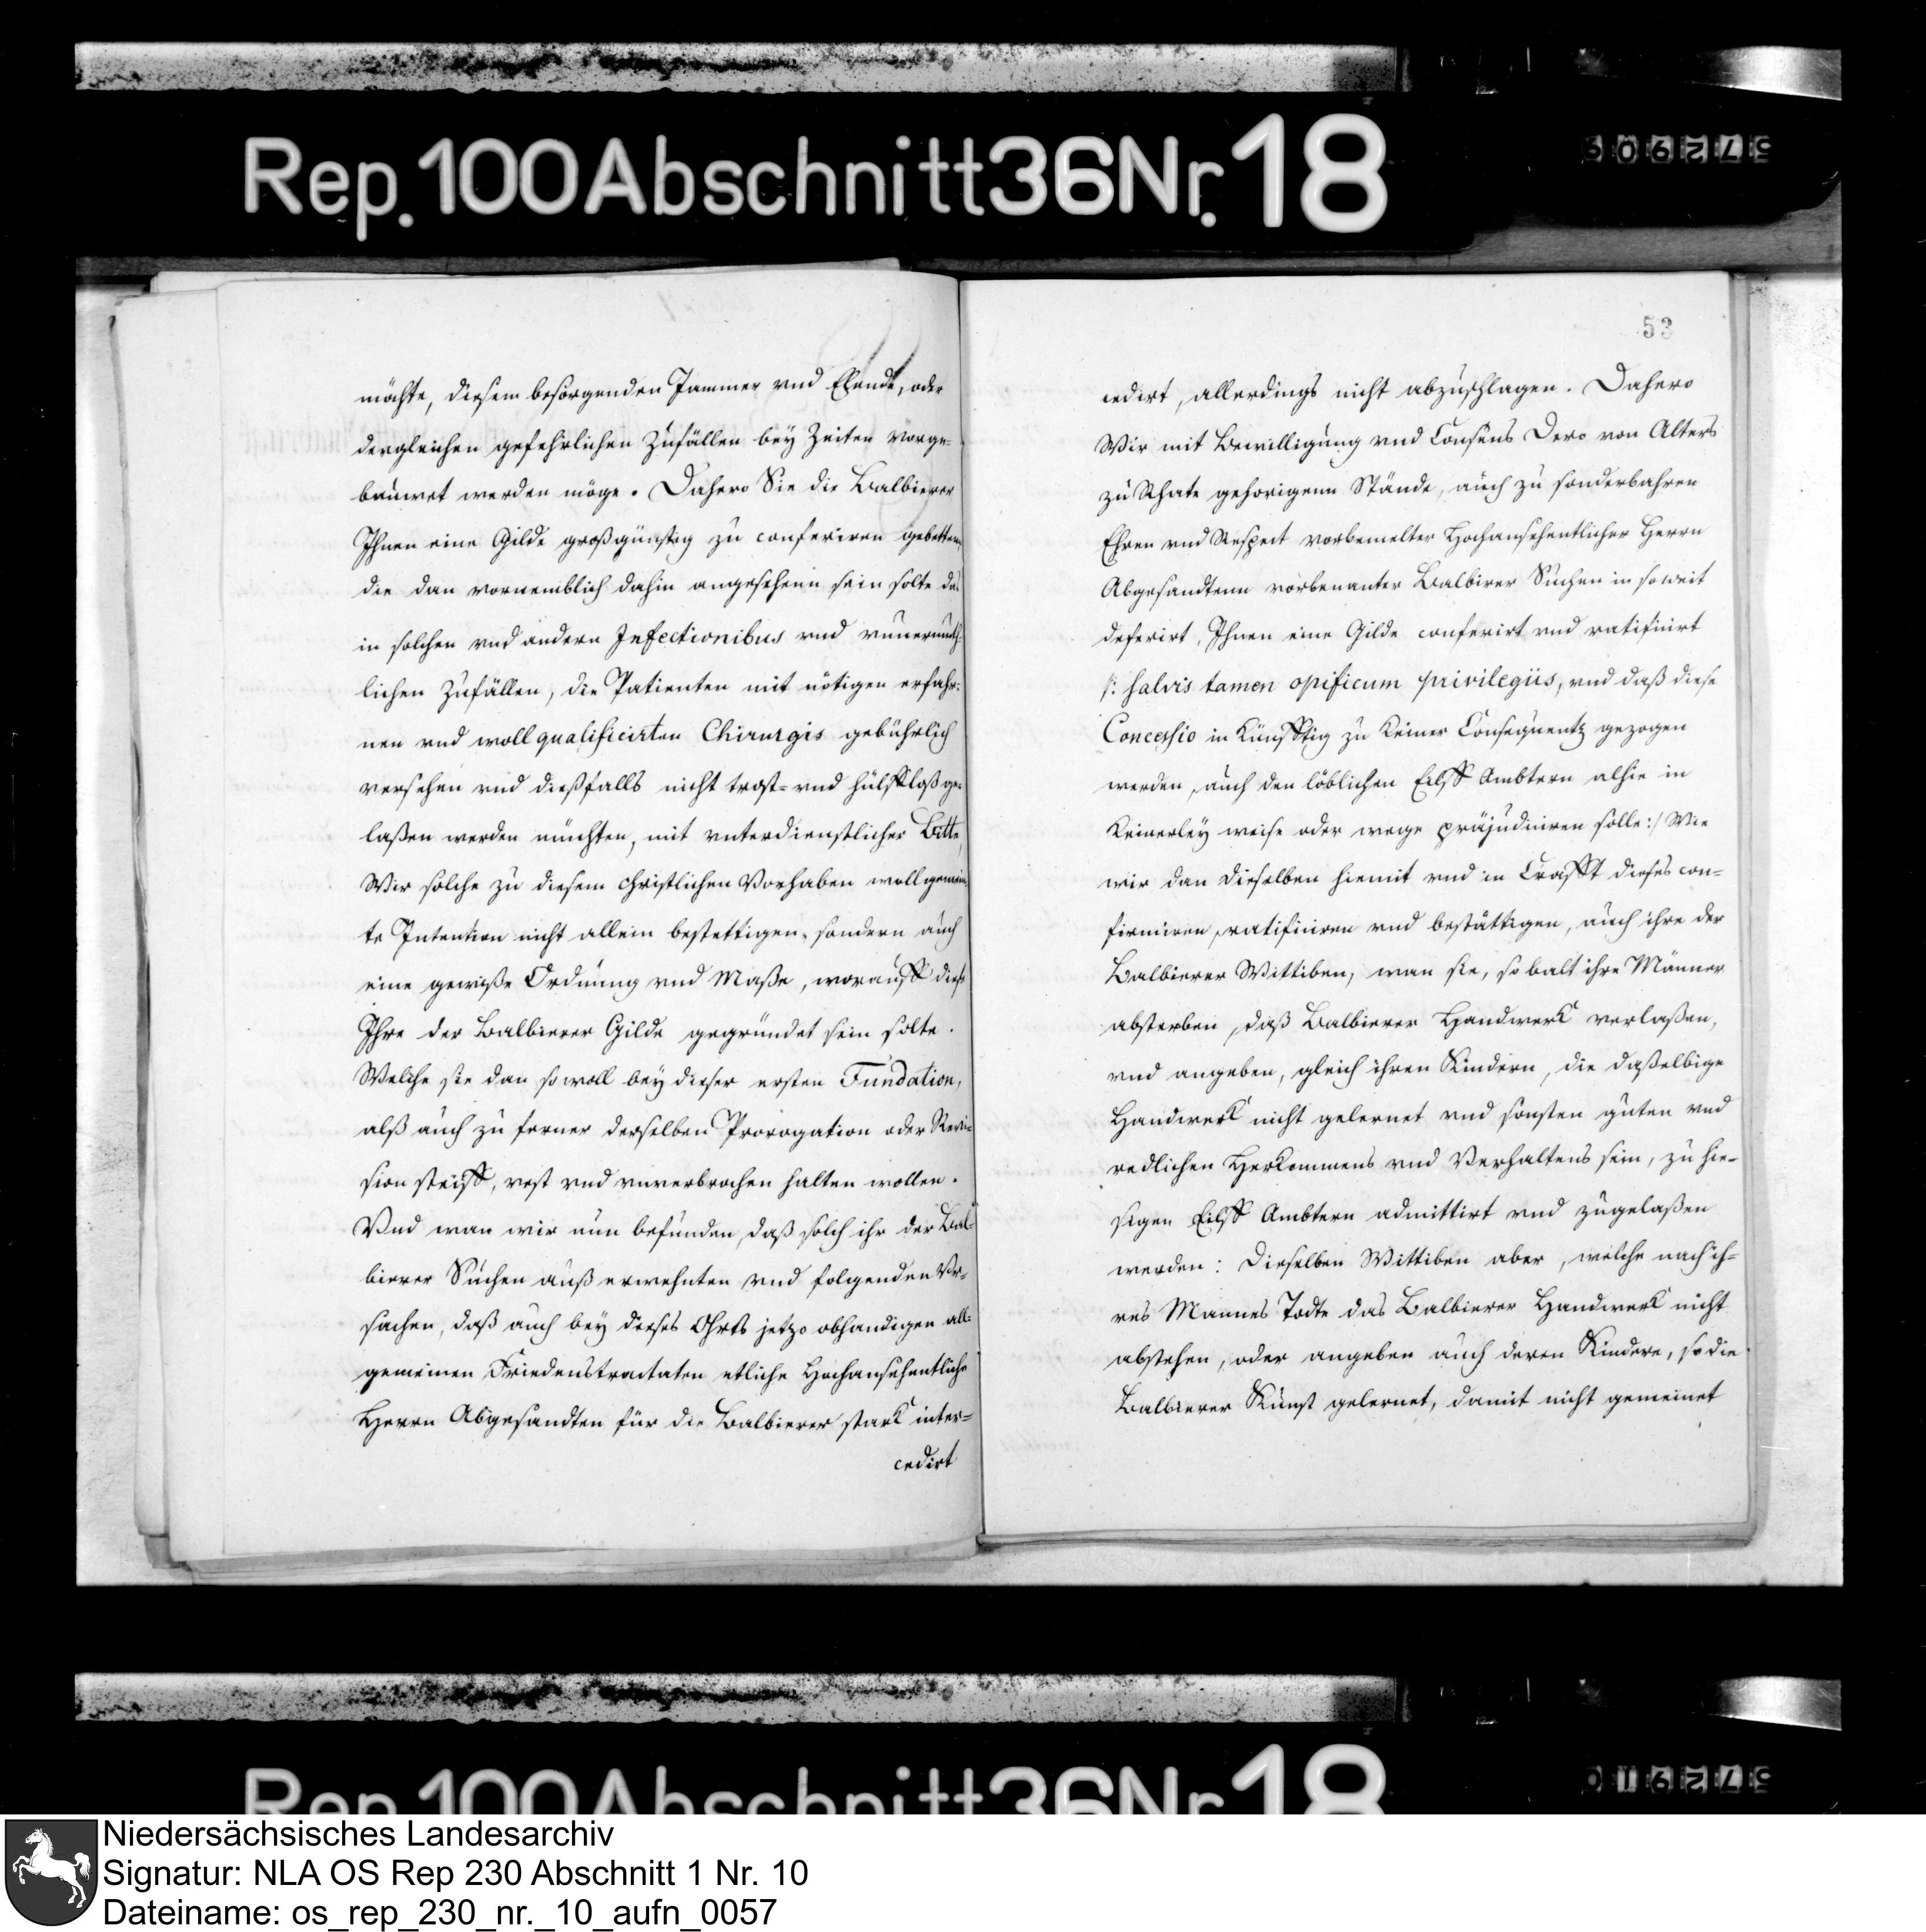 Rep. 100 Abschnitt 36 Nr. 18
möchte, diesem besorgenden Jammer vnd Elende, oder
dergleichen gefehrlichen Zufällen bey Zeiten vorge-
bauwet werden möge. Dahero Sie die Balbierer
Ihnen eine Gilde großgünstig zu conferiren gebetten,
die dan vornemblich dahin angesehenn sein solte das
in solchen vnd andern Infectionibus vnd vnuermuth-
lichen Zufällen, die Patienten mit nötigen erfahr-
nen vnd woll qualificirten Chirurgis gebührlich
versehen vnd dießfalls nicht trost- vnd hülffloß ge-
laßen werden müchten, mit vnterdienstlicher Bitte,
Wir solche zu diesem christlichen Vorhaben woll gemein-
te Intention nicht allein bestettigen, sondern auch
eine gewiße Ordnung vnd Maße, worauff diese
Ihre der Balbierer Gilde gegründet sein solte.
Welche sie dan so woll bey dieser ersten Fundation,
alß auch zu ferner derselben Prorogation oder Revi-
sion steiff, vest vnd vnverbrochen halten wollen.
Vnd wan wir nun befunden, daß solch ihr der Bal-
bierer Suchen auß erwehnten vnd folgenden Vr-
sachen, daß auch bey dieses Ohrts jetzo obhandigen all-
gemeinen Friedenstractaten etliche Hochansehentliche
Herrn Abgesandten für die Balbierer stark inter-
cedirt
53
cedirt, allerdings nicht abzuschlagen. Dahero
Wir mit Bewilligung vnd Consens Dero von Alters
zu Rhate gehorigenn Stände, auch zu sonderbahren
Ehren vnd Respect vorbemelter Hochansehentlicher Herrn
Abgesandtenn vorbenanter Balbirer Suchen in so weit
deferirt, Ihnen eine Gilde conferirt vnd ratificirt
/: salvis tamen opificum privilegiis, vnd daß diese
Concessio in Künfftig zu keiner Consequentz gezogen
werden, auch den löblichen Eilff Ambtern alhie in
keinerley weise oder wege präjudiciren solle :/ Wie
wir dan dieselben hiemit vnd in Crafft dieses con-
firmiren, ratificiren vnd bestättigen, auch ihre der
Balbierer Wittiben, wan sie, so balt ihre Männer
absterben, daß Balbierer Handwerk verlaßen,
vnd angeben, gleich ihren Kindern, die daßelbige
Handwerk nicht gelernet vnd sonsten guten vnd
redlichen Herkommens vnd Verhaltens sein, zu hie-
sigen Eilff Ambtern admittirt vnd zugelaßen
werden: Dieselben Wittiben aber, welche nach ih-
res Mannes Todte das Balbierer Handwerk nicht
abstehen, oder angeben auch deren Kindere, so die
Balbierer Kunst gelernet, damit nicht gemeinet
Rep. 100 Abschnitt 36 Nr. 18
Niedersächsisches Landesarchiv
Signatur: NLA OS Rep 230 Abschnitt 1 Nr. 10
Dateiname: os_rep_230_nr._10_aufn_0057